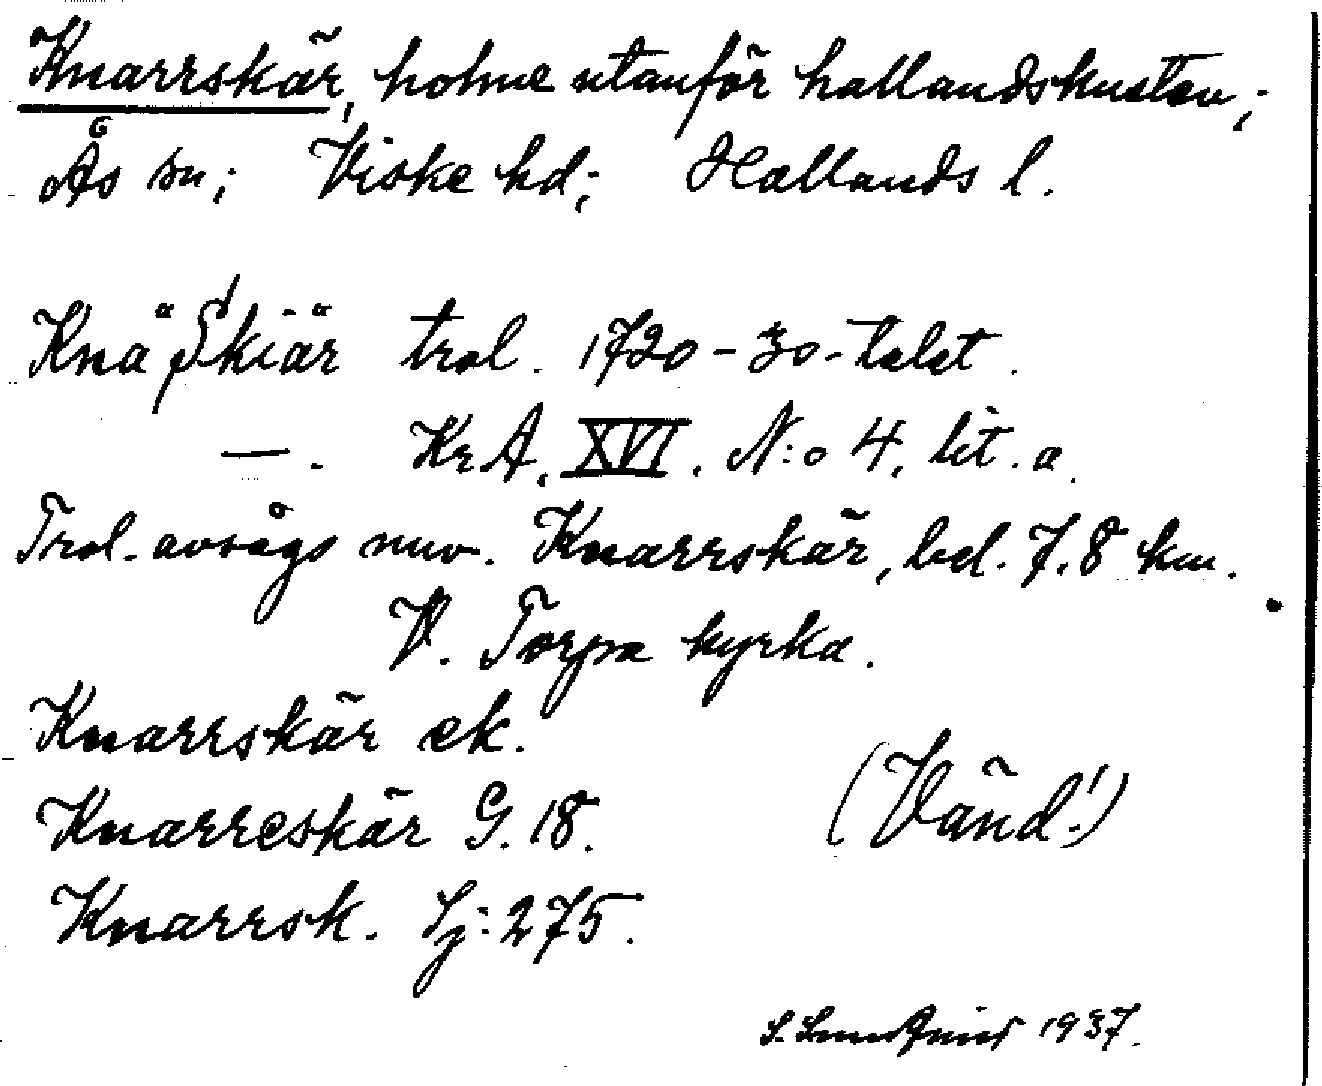 Knarrskär, holme utanför hallandskusten;
Ås sn; Viske hd; Hallands l.
KnäSkiär trol. 1720-30-talet.
—. Kr.A. XVI. N:o 4, lit. a.
Trol. avsågs nuv. Knarrskär, bel. 7.8 km.
V. Torpa kyrka.
Knarrskär ek.
Knarreskär G. 18.
(Vänd!)
Knarrsk. Sj: 275.
S. Lundquist 1937.